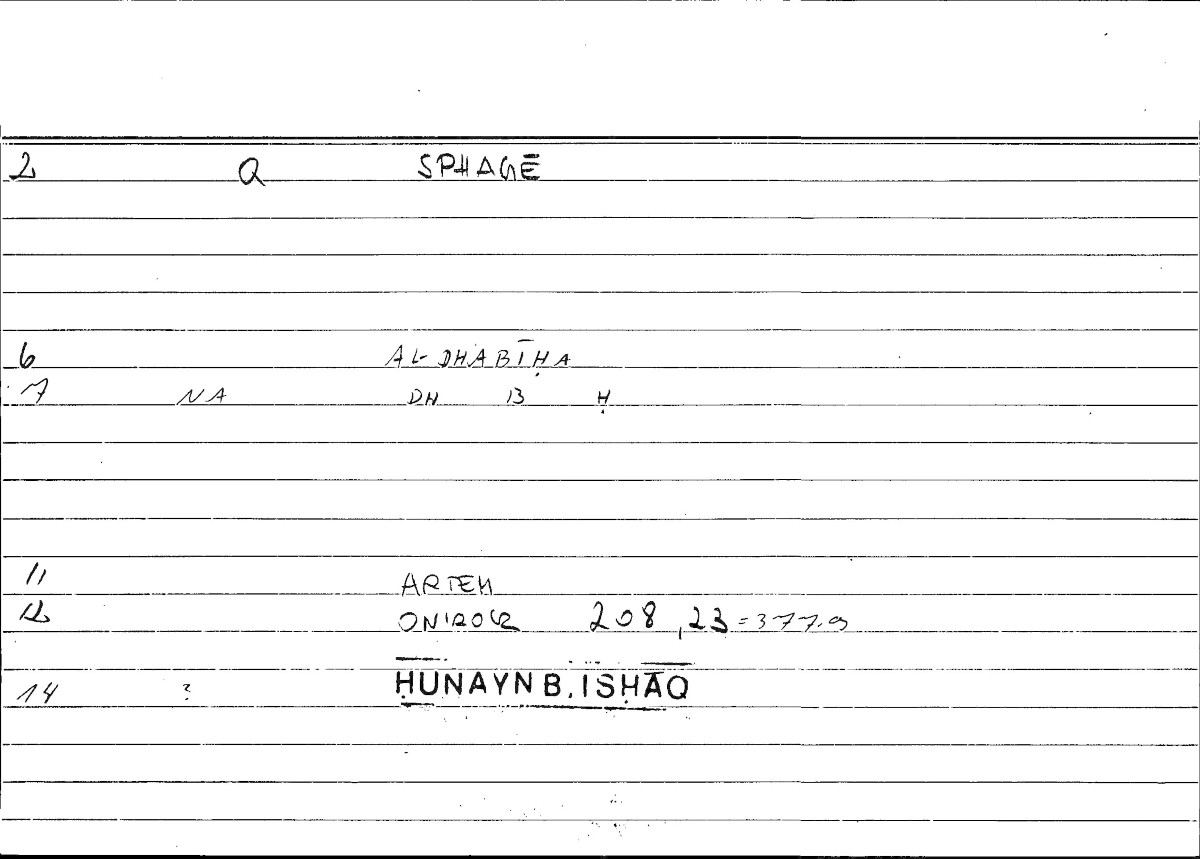 2 Q SPHAGĒ
6 AL-DHABĪḤA
7 NA DH B Ḥ
11 ARTEM
12 ONIROCR 208,23 = 377.9
14 ? ḤUNAYN B. ISḤĀQ